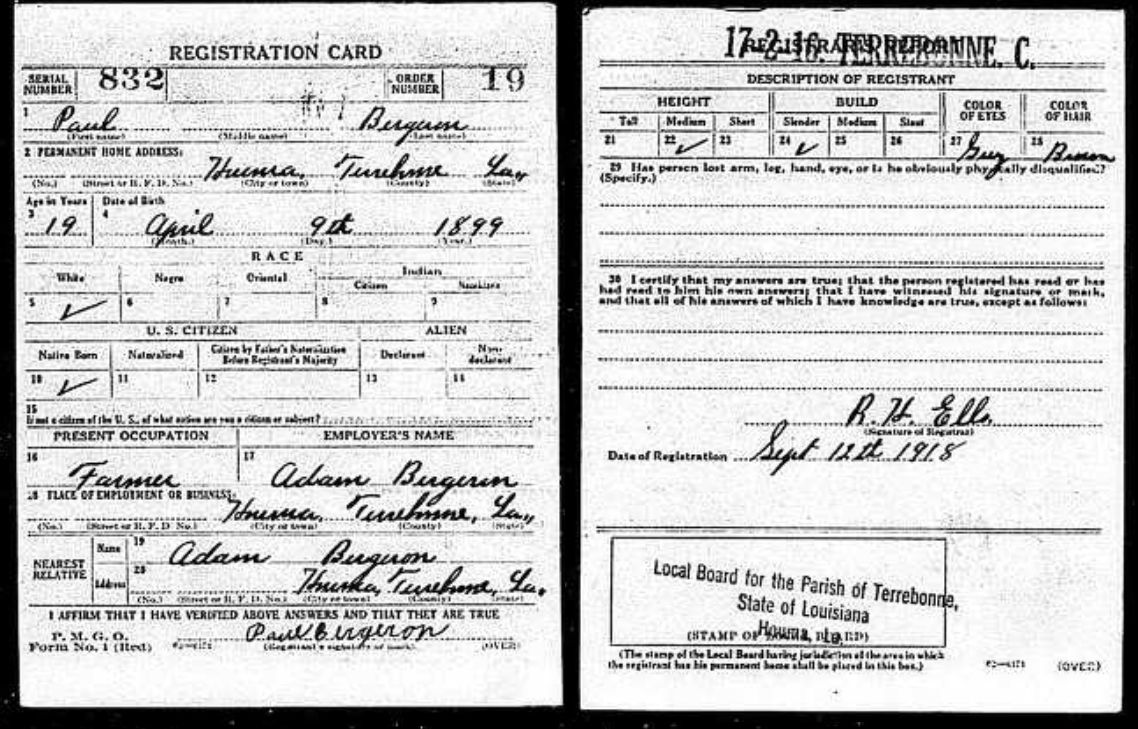 REGISTRATION CARD
SERIAL NUMBER 832 ORDER NUMBER 19
1 Paul Bergeron
(First name) (Middle name) (Last name)
2 PERMANENT HOME ADDRESS:
Houma, Terrebonne La,
(No.) (Street or R. F. D. No.) (City or town) (County) (State)
Age in Years Date of Birth
3 19 4 April 9th 1899
(Month.) (Day.) (Year.)
RACE
White Negro Oriental Indian
Citizen Noncitizen
5 ✓ 6 7 8 9
U. S. CITIZEN ALIEN
Native Born Naturalized Citizen by Father's Naturalization Before Registrant's Majority Declarant Non-declarant
10 ✓ 11 12 13 14
15
If not a citizen of the U. S., of what nation are you a citizen or subject?
PRESENT OCCUPATION EMPLOYER'S NAME
16 Farmer 17 Adam Bergeron
18 PLACE OF EMPLOYMENT OR BUSINESS:
Houma, Terrebonne, La,,
(No.) (Street or R. F. D. No.) (City or town) (County) (State)
NEAREST RELATIVE Name 19 Adam Bergeron
Address 20 Houma Terrebonne, La.
(No.) (Street or R. F. D. No.) (City or town) (County) (State)
I AFFIRM THAT I HAVE VERIFIED ABOVE ANSWERS AND THAT THEY ARE TRUE
P. M. G. O.
Form No. 1 (Red) Paul Bergeron
(Registrant's signature or mark) (OVER)
17-2-16. TERREBONNE. C.
REGISTRAR'S REPORT
DESCRIPTION OF REGISTRANT
HEIGHT BUILD COLOR OF EYES COLOR OF HAIR
Tall Medium Short Slender Medium Stout
21 22 ✓ 23 24 ✓ 25 26 27 Grey 28 Brown
29 Has person lost arm, leg, hand, eye, or is he obviously physically disqualified?
(Specify.)
30 I certify that my answers are true; that the person registered has read or has
had read to him his own answers; that I have witnessed his signature or mark,
and that all of his answers of which I have knowledge are true, except as follows:
R. H. Ells
(Signature of Registrar)
Date of Registration Sept 12th 1918
Local Board for the Parish of Terrebonne,
State of Louisiana
Houma, La.
(STAMP OF LOCAL BOARD)
(The stamp of the Local Board having jurisdiction of the area in which
the registrant has his permanent home shall be placed in this box.)
(OVER)